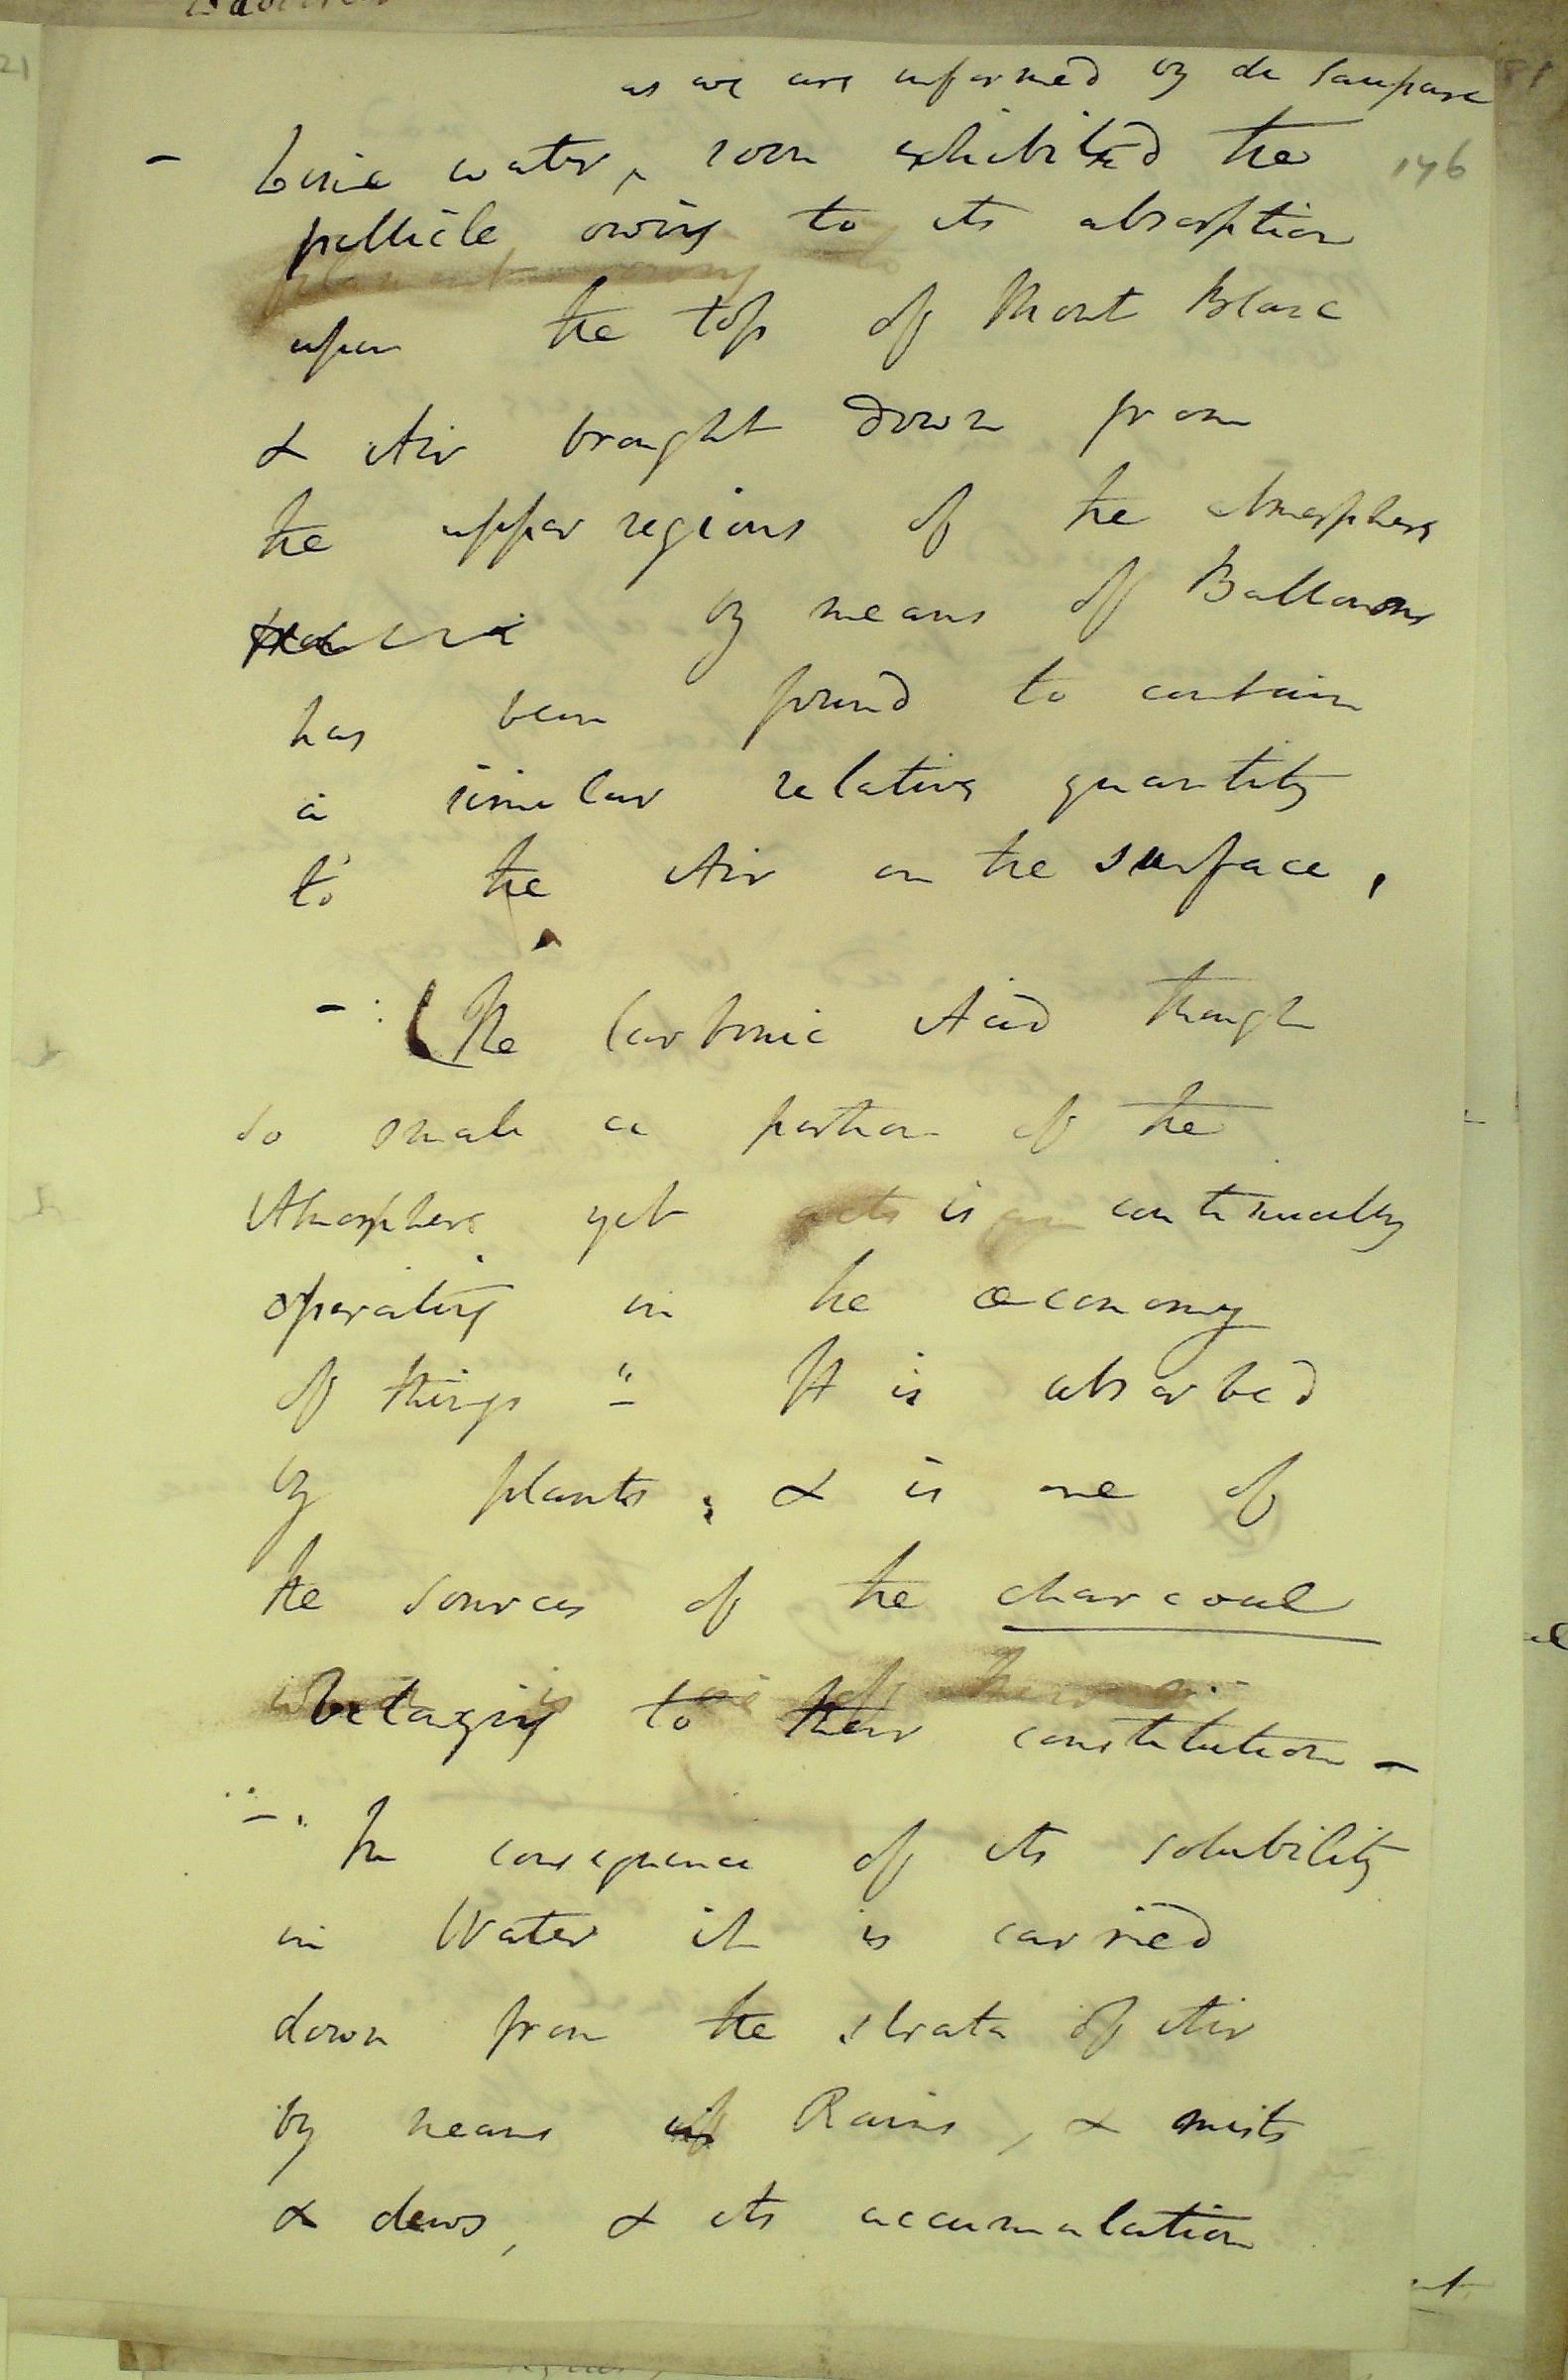 as we are informed by de Saussure
146
– Lime water, soon exhibited the
pellicle owing to its absorption
upon the top of Mont Blanc
& Air brought down from
the upper regions of the Atmosphere
by means of Balloons
has been found to contain
a similar relative quantity
to the Air on the surface,
– : The Carbonic Acid though
so small a portion of the
Atmosphere yet is continually
operating in the œconomy
of things " – It is absorbed
by plants; & is one of
the sources of the charcoal
belonging to their constitution –
–. In consequence of its solubility
in Water it is carried
down from the strata of Air
by means of Rains, & mists
& dews, & its accumulation